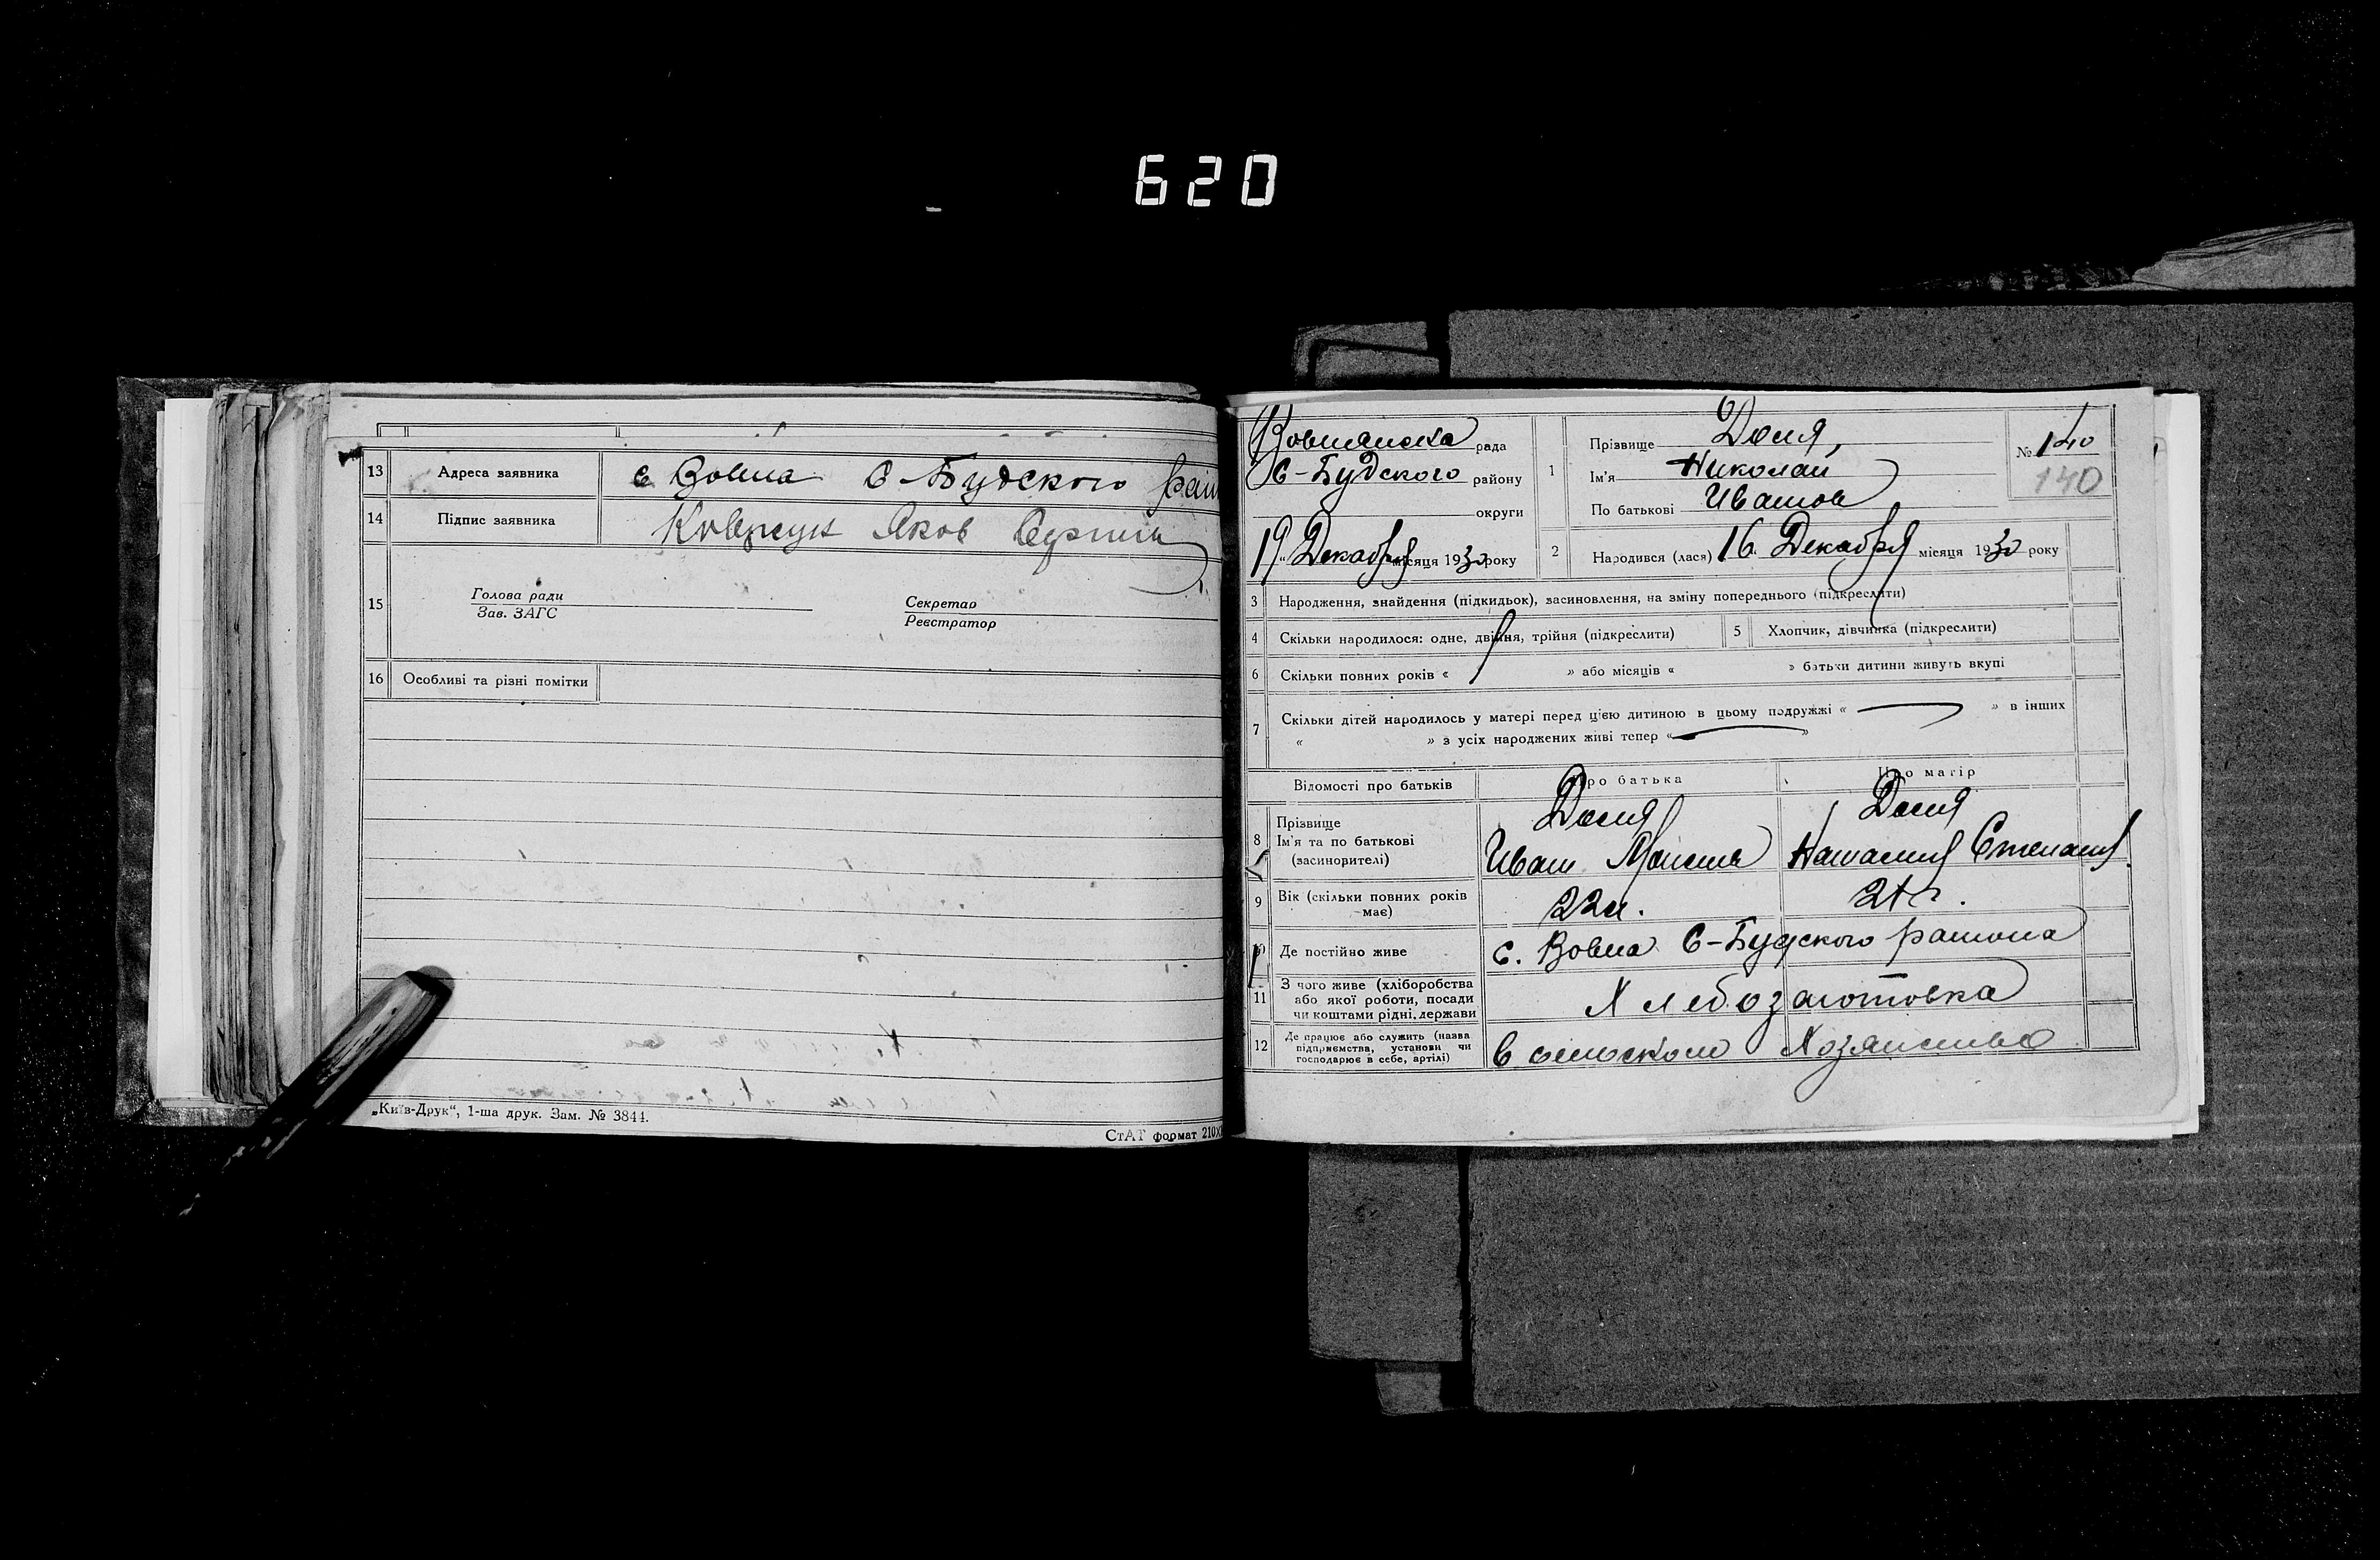 620
13 Адреса заявника с Вовна С-Будского рай
14 Підпис заявника Яков
15 Голова ради
Зав. ЗАГС
Секретар
Реєстратор
16 Особливі та різні помітки
„Київ-Друк“, 1-ша друк. Зам. № 3844.
СтАТ формат 210X
Вовнянска рада
С-Будского району
округи
19 Декабря місяця 1930 року
1 Прізвище Доля,
Ім'я Николай
По батькові Иванов
№ 140
140
2 Народився (лася) 16 Декабря місяця 1930 року
3 Народження, знайдення (підкидьок), засиновлення, на зміну попереднього (підкреслити)
4 Скільки народилося: одне, двійня, трійня (підкреслити)
5 Хлопчик, дівчинка (підкреслити)
6 Скільки повних років « » або місяців « » батьки дитини живуть вкупі
7 Скільки дітей народилось у матері перед цією дитиною в цьому подружжі « » в інших
« » з усіх народжених живі тепер « »
Відомості про батьків
Про батька
Про матір
8 Прізвище
Ім'я та по батькові
(засиновителі)
Доля
Иван
Доля
Наталия Степанов
9 Вік (скільки повних років
має)
22л.
21 г.
10 Де постійно живе с. Вовна С-Будского района
11 З чого живе (хліборобства
або якої роботи, посади
чи коштами рідні, держави
Хлебозаготовка
12 Де працює або служить (назва
підприємства, установи чи
господарює в себе, артілі)
в сельском Хозяйстве